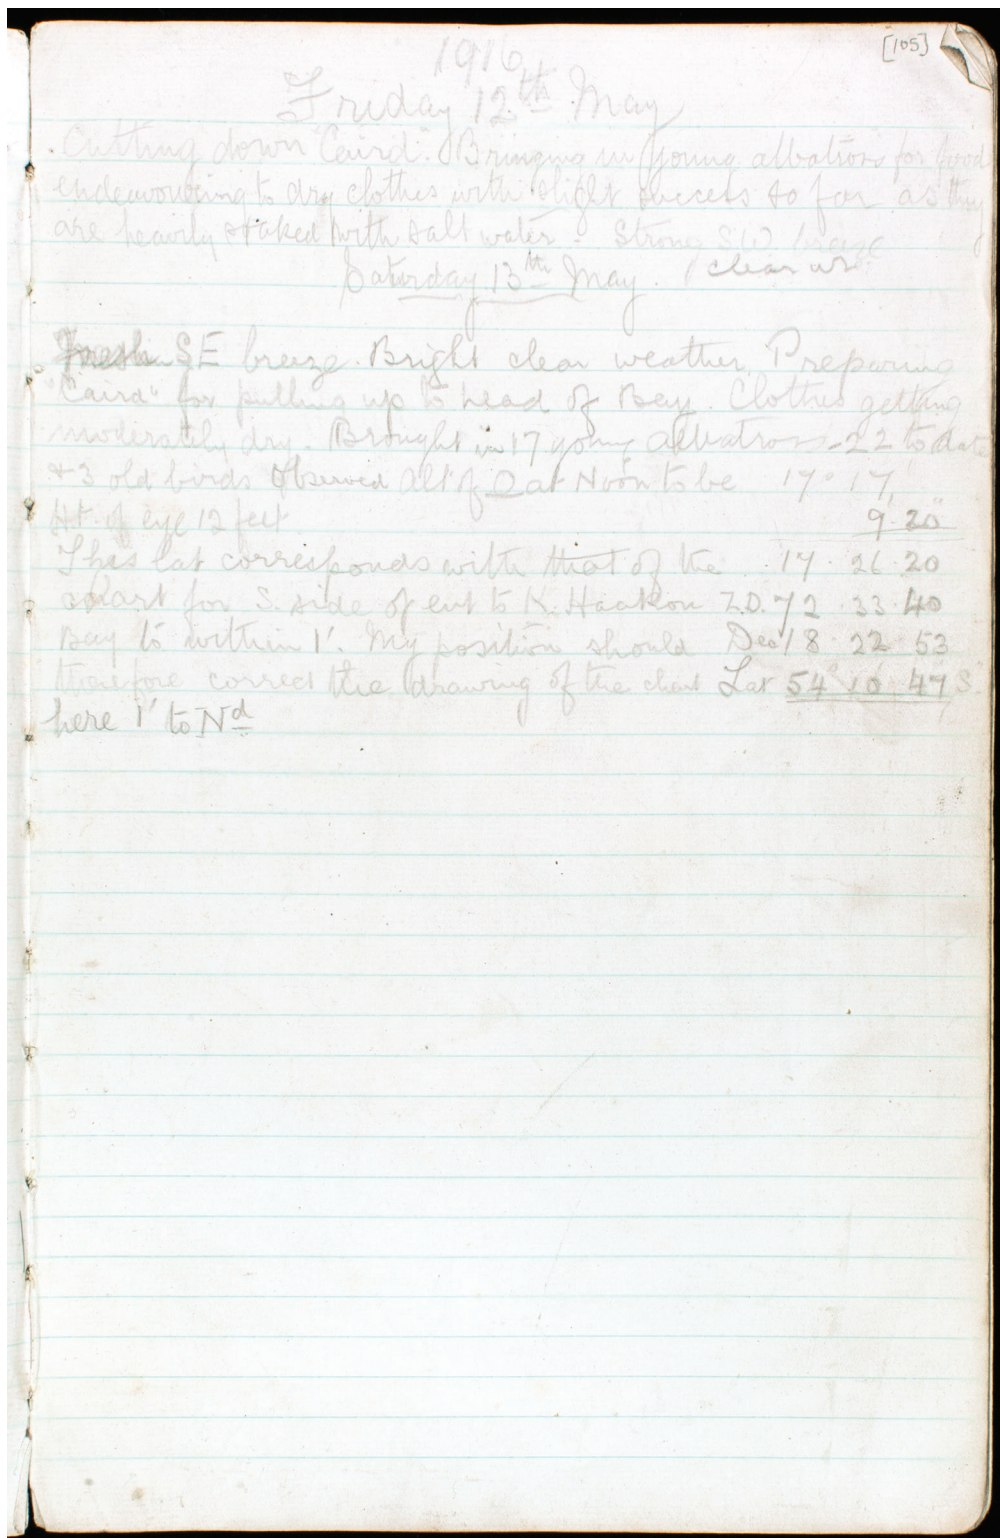 [105]
1916
Friday 12th May
Cutting down "Caird". Bringing in young albatross for food
endeavouring to dry clothes with slight success so far as they
are heavily staked with salt water - Strong SW breeze
clear wr.
Saturday 13th May.
Fresh SE breeze. Bright clear weather. Preparing
"Caird" for pulling up to head of Bay. Clothes getting
moderately dry. Brought in 17 young albatross - 22 to date
& 3 old birds Observed Alt of O at Noon to be 17° 17'
Ht. of eye 12 feet 9 20"
This lat corresponds with that of the 17 26 20
chart for S. side of ent to K. Haakon Z.D. 72 33 40
Bay to within 1'. My position should Dec 18 22 53
therefore correct the drawing of the chart Lat 54 10 47 S.
here 1' to Nd